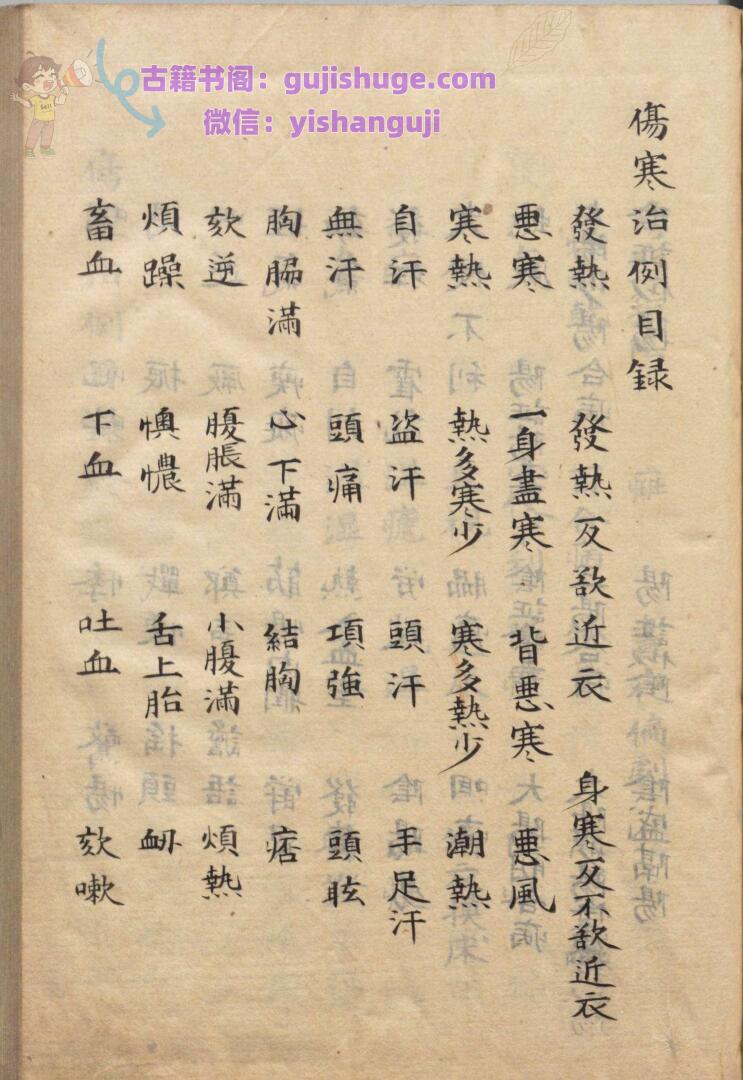 古籍书阁：gujishuge.com
微信：yishanguji
傷寒治例目録
發熱 發熱反欲近衣 身寒反不欲近衣
惡寒 一身盡寒 背惡寒 惡風
寒熱 熱多寒少 寒多熱少 潮熱
自汗 盗汗 頭汗 手足汗
無汗 頭痛 項強 頭眩
胸脇滿 心下滿 結胸 痞
欬逆 腹脹滿 小腹滿 煩熱
煩躁 懊憹 舌上胎 衄
畜血 下血 吐血 欬嗽